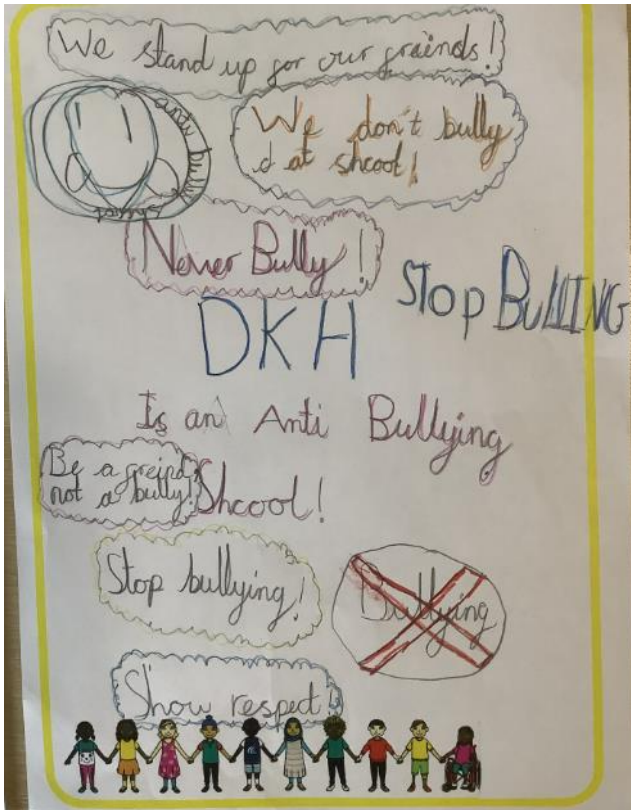 We stand up for our freinds!
anti bully
We don't bully
d at shcool!
Never Bully!
STOP BULLING
DKH
Is an Anti Bullying
Be a freind
not a bully!
Shcool!
Stop bullying!
Bullying
Show respect!